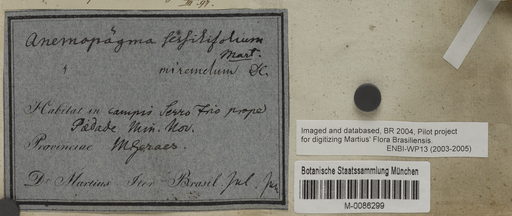 Anemopägma sessilifolium
Mart.
mirandum &c.
Habitat in campis Serro Frio prope
Piedade Min. Nov.
Provinciae MGeraes.
Dr Martius Iter Brasil. Jul.
Imaged and databased, BR 2004, Pilot project
for digitizing Martius' Flora Brasiliensis
ENBI-WP13 (2003-2005)
Botanische Staatssammlung München
M-0086299